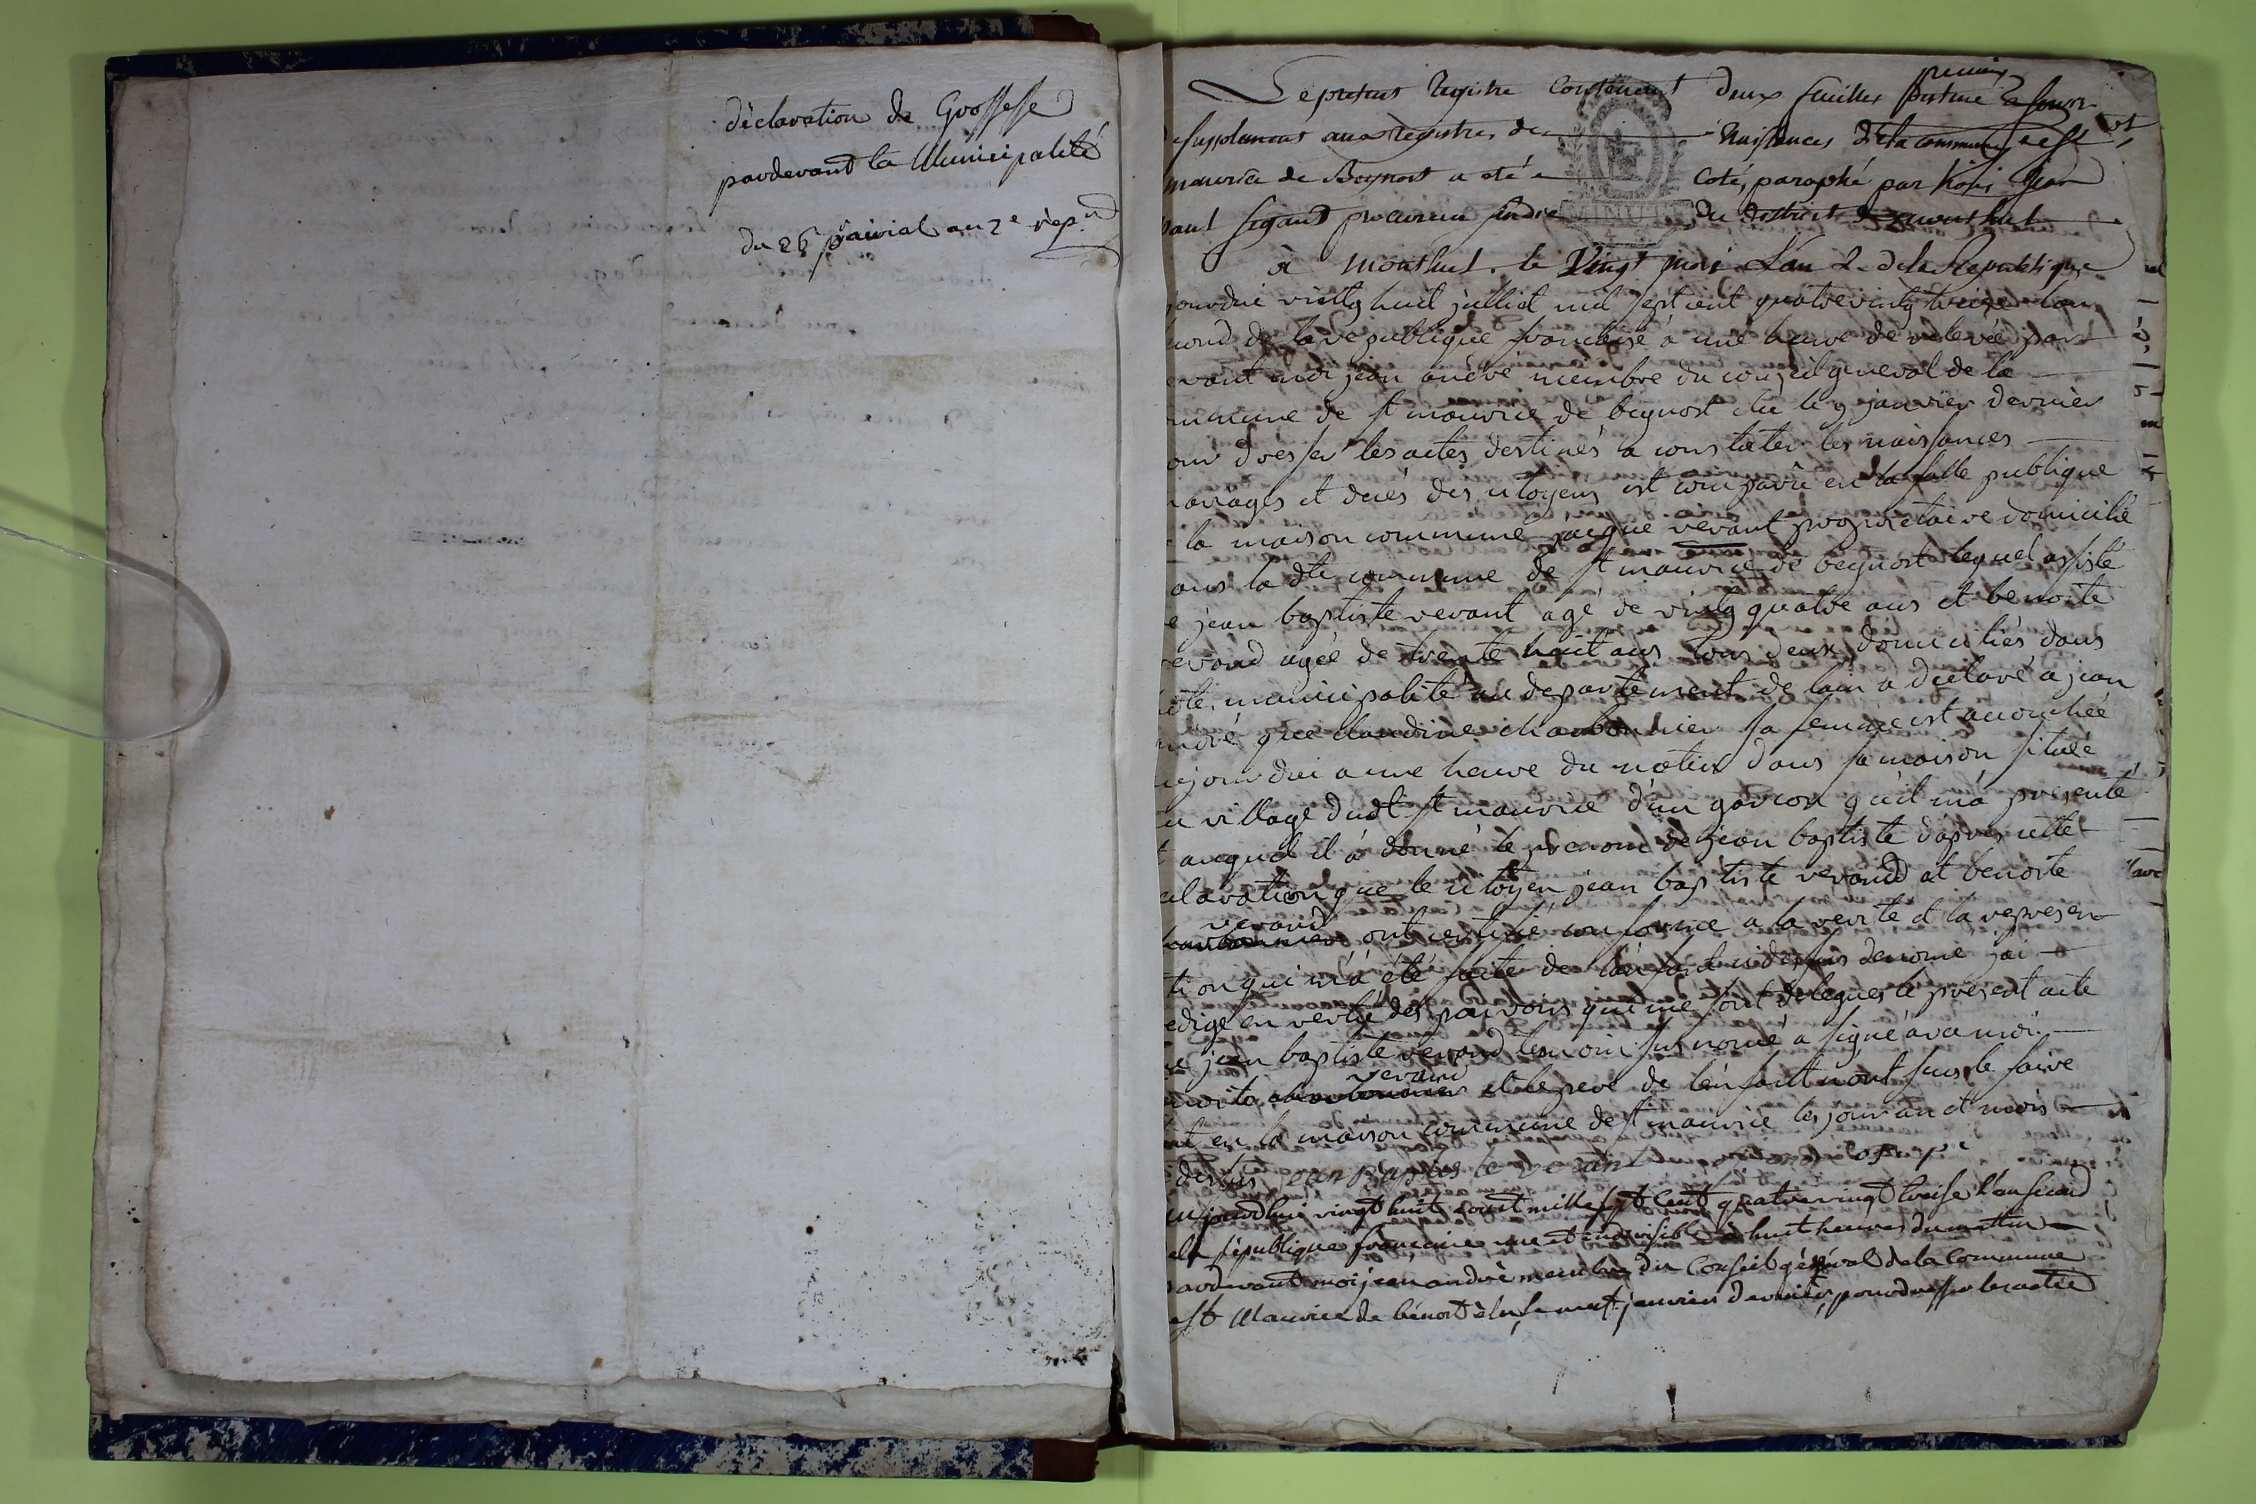 déclaration de Grossesse
pardevant la Municipalité
du 25 prairial an 2e rep.
Le present Registre Contenant deux feuilles
supplement aux registres de naissances de la commune de St
maurice de Beynost a été Coté, paraphé par
procureur sindic du district de montluel
à montluel le Vingt mai L'an 2 de la Republique
jourdui vintg huit julliet mil sept cent quatrevintg treize lan
cond de la republique francaise a une heure de relevée par
evant moi jean andré membre du conseil general de la
mmune de st maurice de beynost elu le 9 janvier dernier
our dresser les actes destinés a constater les naissances
ariages et decés des citoyens est comparu en la salle publique
la maison commune jacque revant proprietaire domicilié
ans la dte commune de st maurice de beynost lequel assisté
e jean baptiste revant agé de vintg quatre ans et benoite
revand agée de trente huit ans tous deux domiciliés dans
dte municipalité au departement de lain a declaré a jean
andré que claudine charbonnier sa femme est accouchée
ujourdui a une heure du matin dans sa maison située
u village dudt st maurice d'un garcon qu'il m'a presenté
t auquel il a donné le prenom de jean baptiste d'apres cette
claration que le citoyen jean baptiste revand et benoite
revand
ont certifié conforme a la verité et la represen
tion qui m'a été faite de l'enfant cidessus denomé jai
edigé en vertu des pouvoirs qui me sont delegues le present acte
ue jean baptiste revand temoin susnomé a signé avec moi
revand
noite et le pere de l'enfant n'ont sus le faire
ait en la maison commune de st maurice les jour an et mois
dessus jean Baptiste revant
aujourdhui vingt huit aout mille sept Cent quatre vingt treise l'an second
ela république francaise une et indivisible à huit heures du matin
pardevant moi jean andrè membre du Conseil général de la Commune
e St Maurice de bénost èlu le neuf janvier dernier, pour dresser les actes